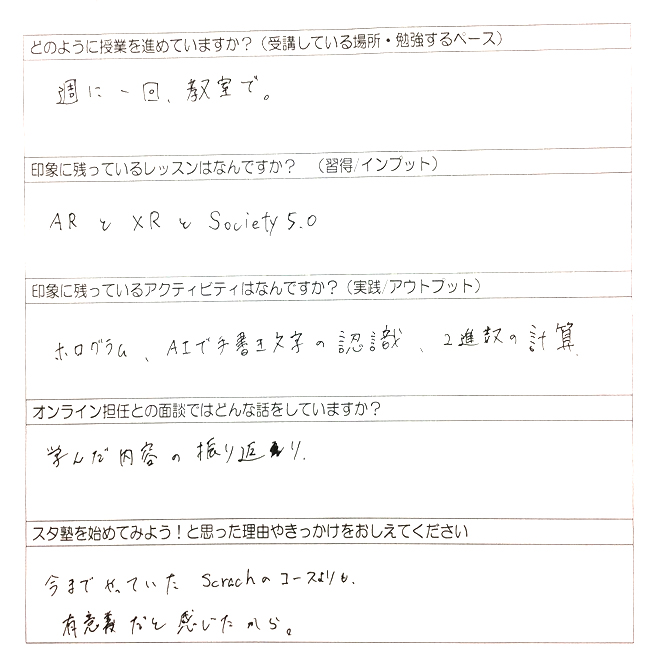 どのように授業を進めていますか？（受講している場所・勉強するペース）
週に一回、教室で。
印象に残っているレッスンはなんですか？　（習得/インプット）
ARとXRとSociety 5.0
印象に残っているアクティビティはなんですか？（実践/アウトプット）
ホログラム、AIで手書き文字の認識、2進数の計算
オンライン担任との面談ではどんな話をしていますか？
学んだ内容の振り返り.
スタ塾を始めてみよう！と思った理由やきっかけをおしえてください
今までやっていたScrachのコースよりも、
有意義だと感じたから。